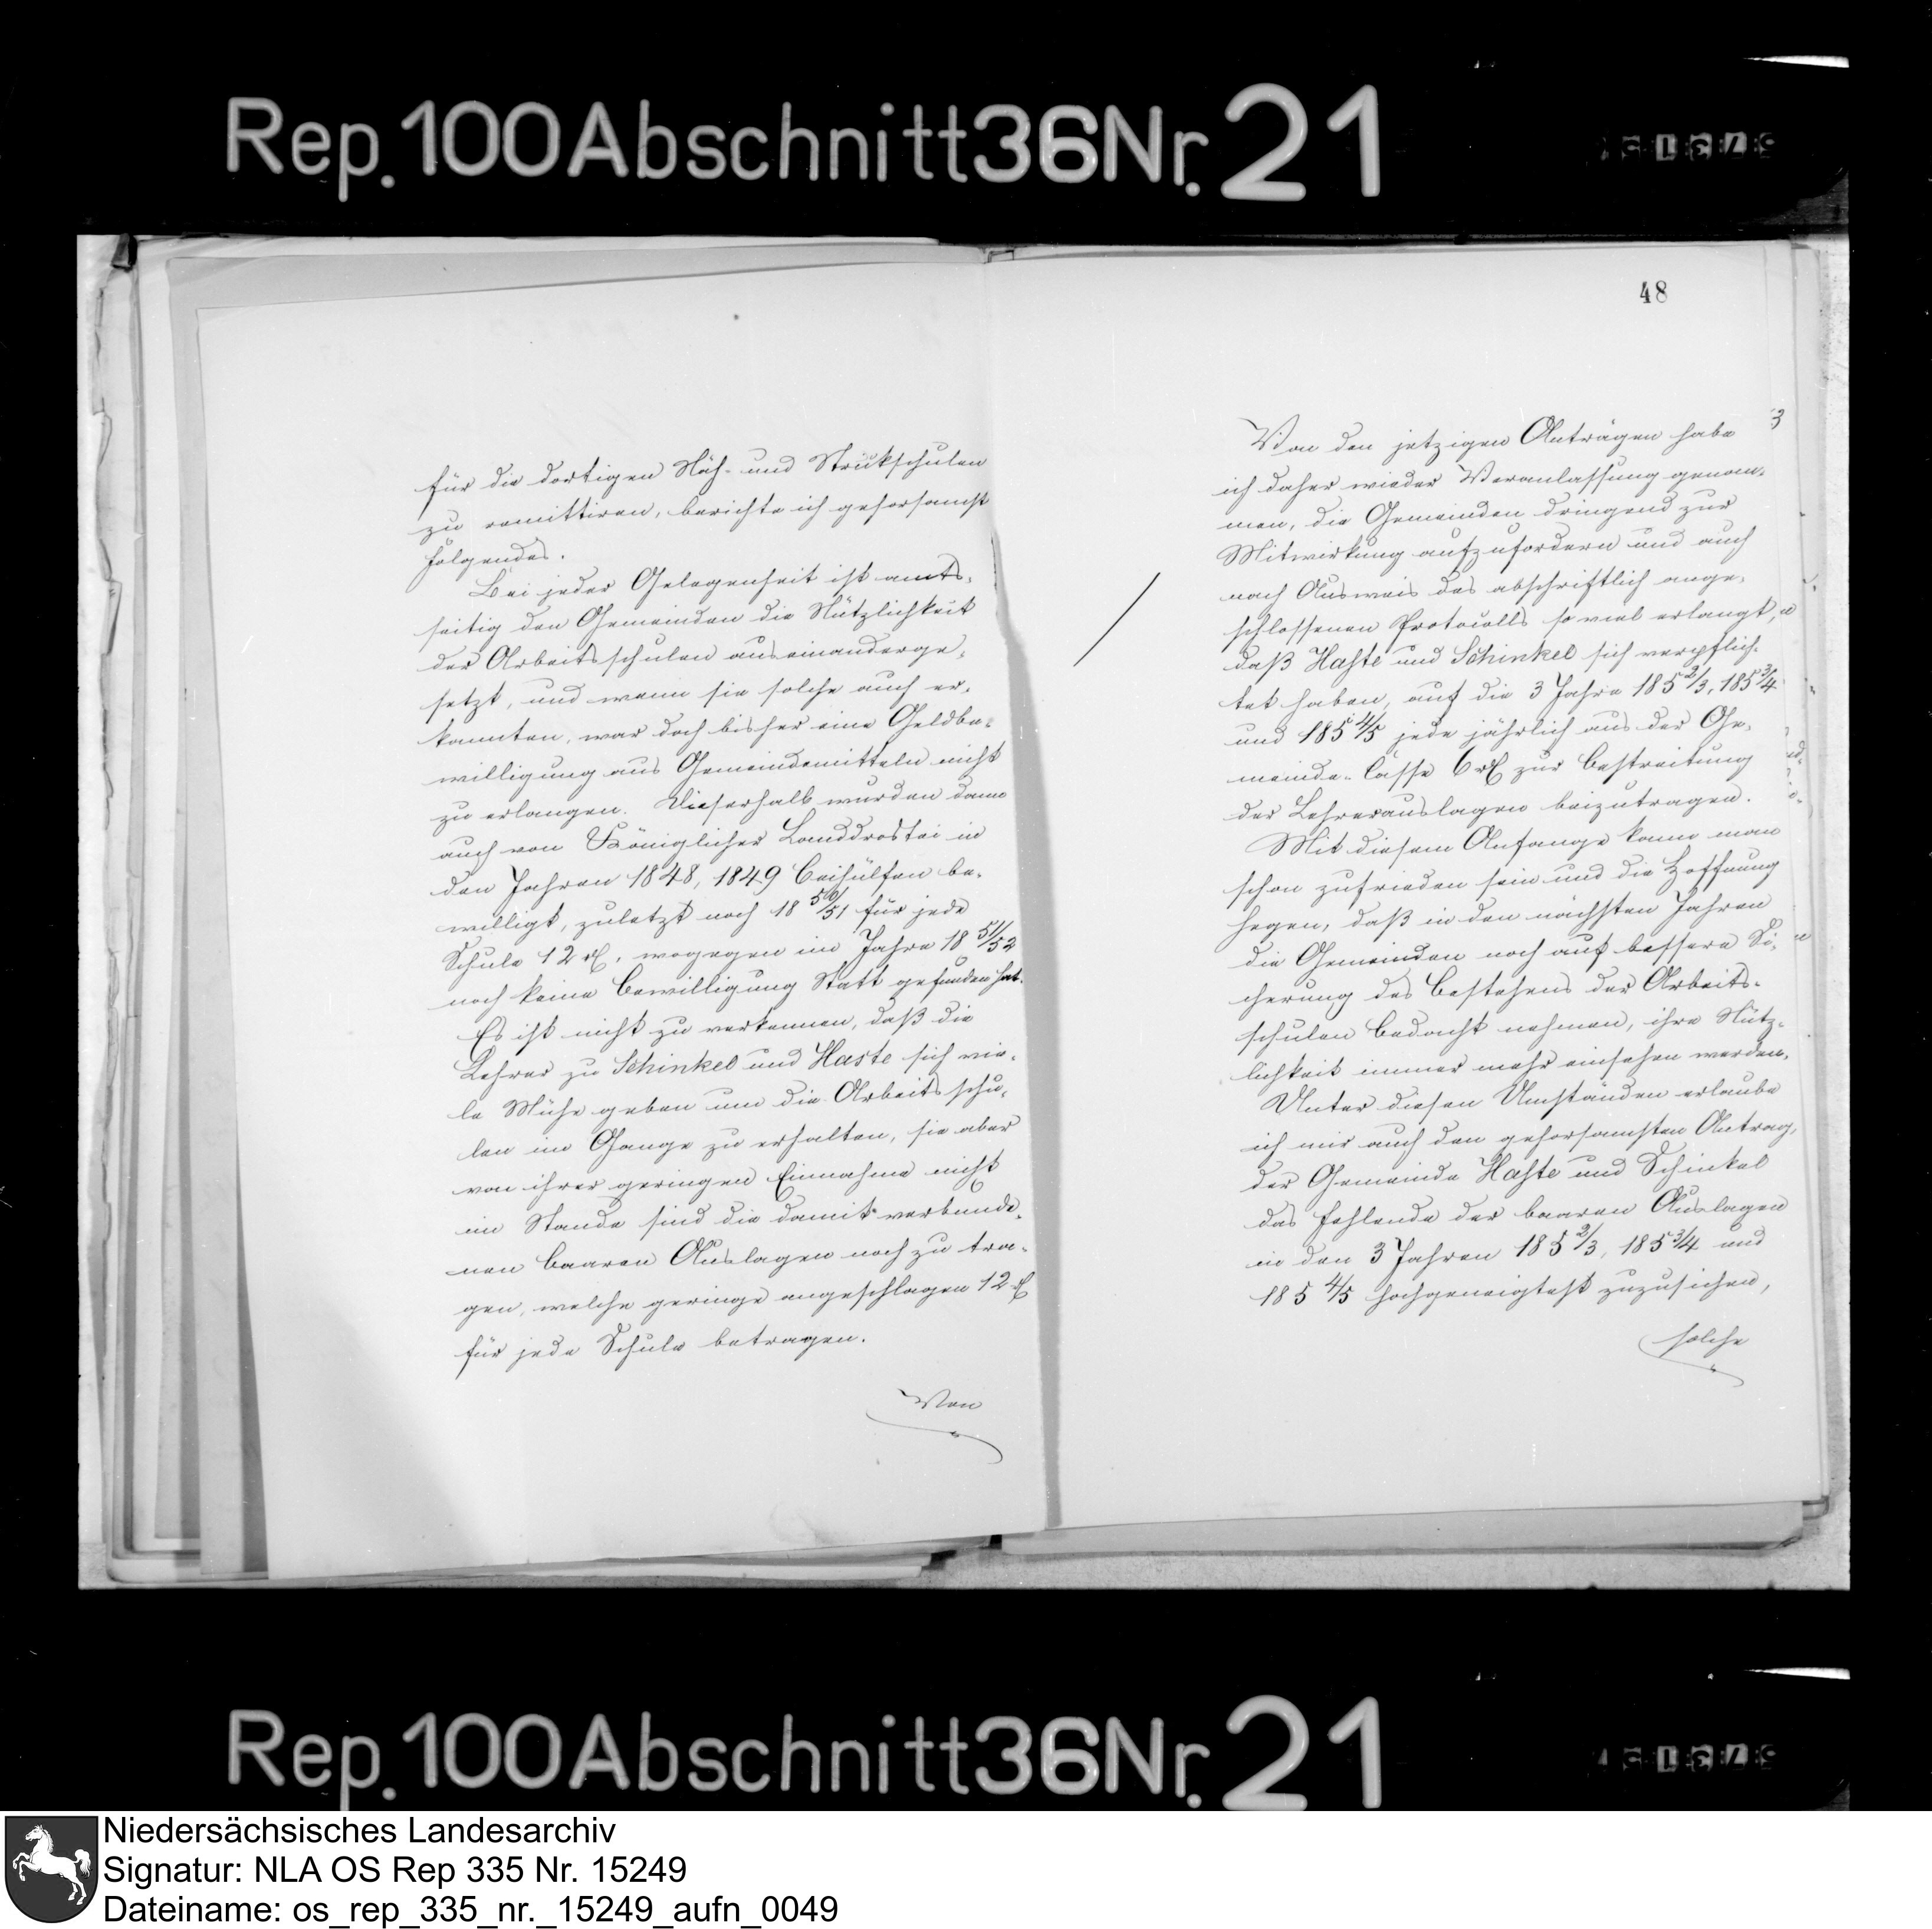 Rep. 100 Abschnitt 36 Nr. 21
für die dortigen Näh- und Strickschulen
zu remittiren, berichte ich gehorsamst
Folgendes.
Bei jeder Gelegenheit ist amts-
seitig den Gemeinden die Nützlichkeit
der Arbeitsschulen auseinanderge-
setzt, und wenn sie solche auch er-
kannten, war doch bisher eine Geldbe-
willigung aus Gemeindemitteln nicht
zu erlangen. Dieserhalb wurden dann
auch von Königlicher Landdrostei in
den Jahren 1848, 1849 Beihülfen be-
willigt, zuletzt noch 18 50/51 für jede
Schule 12 rℓ, wogegen im Jahre 18 51/52
noch keine Bewilligung Statt gefunden hat.
Es ist nicht zu verkennen, daß die
Lehrer zu Schinkel und Haste sich vie-
le Mühe geben um die Arbeitsschu-
len im Gange zu erhalten, sie aber
von ihrer geringen Einnahme nicht
im Stande sind die damit verbunde-
nen baaren Auslagen noch zu tra-
gen, welche geringe angeschlagen 12 rℓ
für jede Schule betragen.
Von
48
3
Von den jetzigen Anträgen habe
ich daher wieder Veranlassung genom-
men, die Gemeinden dringend zur
Mitwirkung aufzufordern und auch
nach Ausweis des abschriftlich ange-
schlossenen Protocolls so viel erlangt,
daß Haste und Schinkel sich verpflich-
tet haben, auf die 3 Jahre 185 2/3, 185 3/4
und 185 4/5 jede jährlich aus der Ge-
meinde-Casse 6 rℓ zur Bestreitung
der Lehrerauslagen beizutragen.
Mit diesem Anfange kann man
schon zufrieden sein und die Hoffnung
hegen, daß in den nächsten Jahren
die Gemeinden noch auf bessere Si-
cherung des Bestehens der Arbeits-
schulen Bedacht nehmen, ihre Nütz-
lichkeit immer mehr einsehen werden.
Unter diesen Umständen erlaube
ich mir auch den gehorsamsten Antrag,
der Gemeinde Haste und Schinkel
das Fehlende der baaren Auslagen
in den 3 Jahren 185 2/3, 185 3/4 und
185 4/5 hochgeneigtest zuzusichern,
solche
Rep. 100 Abschnitt 36 Nr. 21
Niedersächsisches Landesarchiv
Signatur: NLA OS Rep 335 Nr. 15249
Dateiname: os_rep_335_nr._15249_aufn_0049